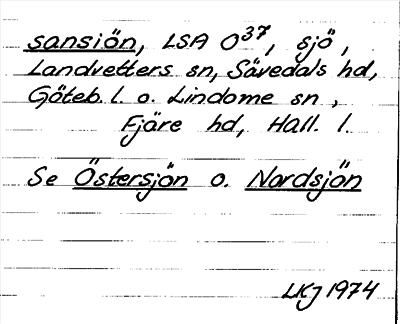 sansiön, LSA O37, sjö,
Landvetters sn, Sävedals hd,
Göteb. l. o. Lindome sn,
Fjäre hd, Hall. l.
Se Östersjön o. Nordsjön
LKJ 1974